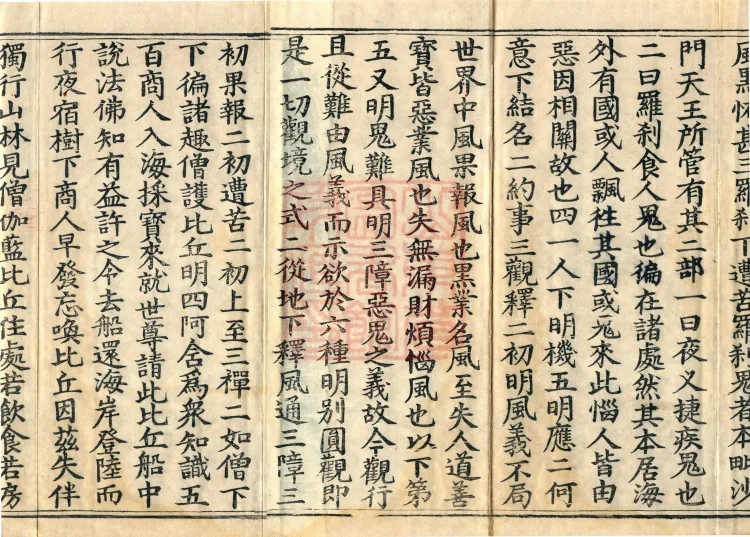 風黑恢甚三羅刹下遭苦羅刹鬼者本毗沙
門天王所管有其二部一曰夜叉捷疾鬼也
二曰羅刹食人鬼也徧在諸處然其本居海
外有國或人飄往其國或元來此惱人皆由
惡因相關故也四一人下明機五明應二何
意下結名二約事三觀釋二初明風義不局
世界中風果報風也黑業名風至失人道善
寶皆惡業風也失無漏財煩惱風也以下第
五又明鬼難具明三障惡鬼之義故今觀行
且從難由風義而示欲於六種明別圓觀即
是一切觀境之式二從地下釋風通三障三
初果報二初遭苦二初上至三禪二如僧下
下徧諸趣僧護比丘明四阿含爲衆知識五
百商人入海採寶來就世尊請此比丘船中
說法佛知有益許之今去船還海岸登陸而
行夜宿樹下商人早發忘喚比丘因茲失伴
獨行山林見僧伽藍比丘住處若飲食若房